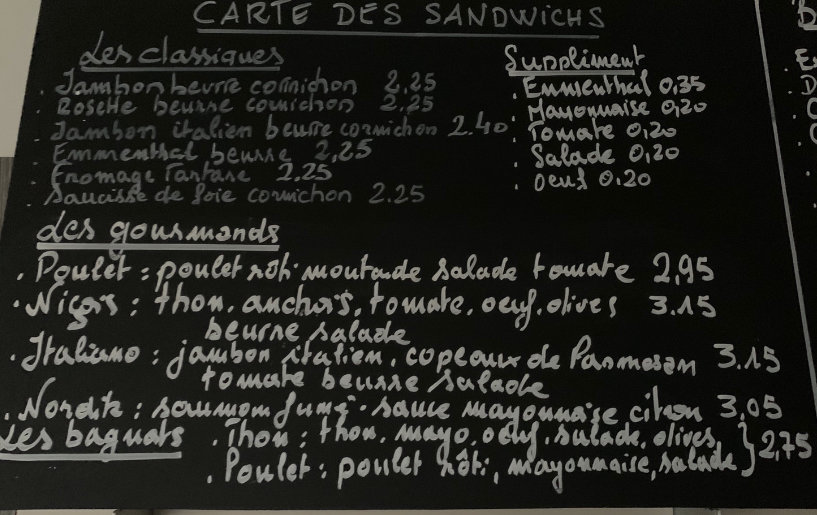 CARTE DES SANDWICHS
Les classiques
. Jambon beurre cornichon 2.25
. Rosette beurre cornichon 2.25
. Jambon italien beurre cornichon 2.40
. Emmenthal beurre 2,25
. Fromage Tartare 2.25
. Saucisse de foie cornichon 2.25
Suppliment
. Emmenthal 0,35
. Mayonnaise 0,20
. Tomate 0,20
. Salade 0,20
. Oeuf 0.20
Les gourmands
. Poulet : poulet rôti moutade salade tomate 2,95
. Niçois : thon, anchois, tomate, oeuf, olives 3.15
beurre, salade
. Italiano : jambon italien, copeaux de Parmesan 3.15
tomate beurre salade
. Nordik : saumom fumé. sauce mayonnaise citron 3,05
Les bagnats . Thon : thon, mayo, oeuf, salade, olives
. Poulet : poulet rôti, mayonnaise, salade } 2,75